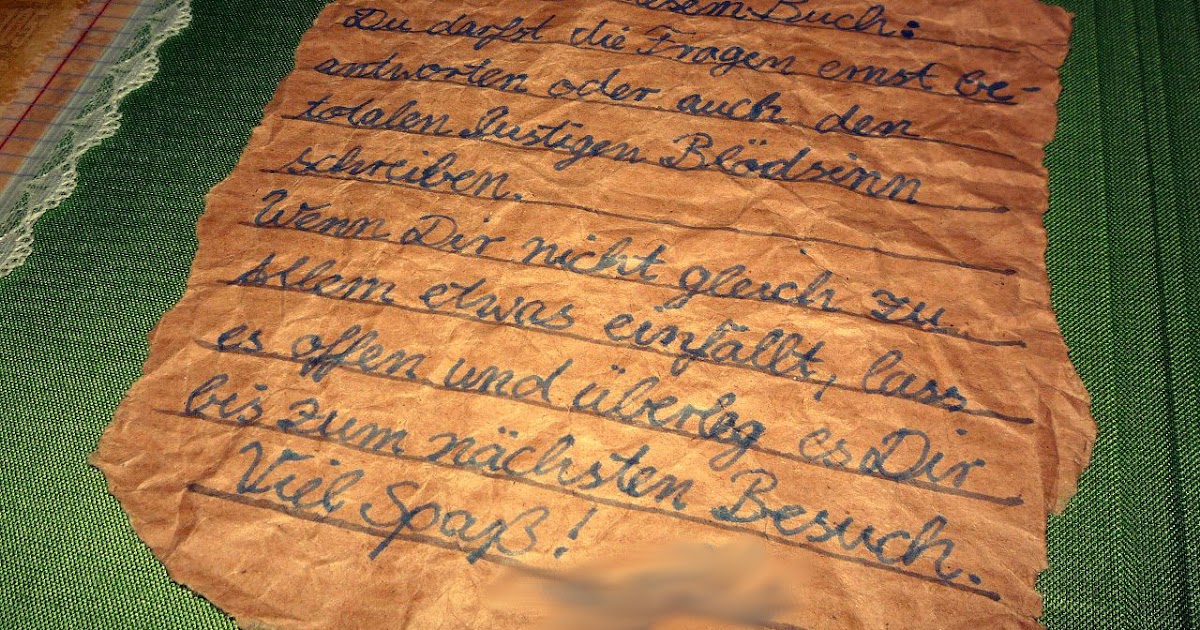 Buch:
Du darfst die Fragen ernst be-
antworten oder auch den
totalen lustigen Blödsinn
schreiben.
Wenn Dir nicht gleich zu
allem etwas einfällt, lass
es offen und überleg es Dir
bis zum nächsten Besuch.
Viel Spaß!